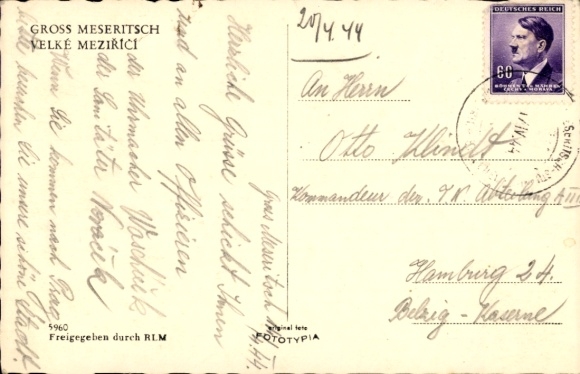 GROSS MESERITSCH
VELKÉ MEZIŘÍČÍ
20/4.44
DEUTSCHES REICH
60
BÖHMEN U. MÄHREN
ČECHY A MORAVA
An Herrn
Otto Klindt
Kommandeur der
Abteilung
Hamburg 24.
Belzig-Kaserne
Gross Meseritsch
Herzliche Grüsse schickt Ihnen
und an allen Offizieren
der Uhrmacher
der Sanitäter
Wenn Sie kommen nach Prag
besuchen Sie unsere schöne Stadt!
5960
Freigegeben durch RLM
original foto
FOTOTYPIA